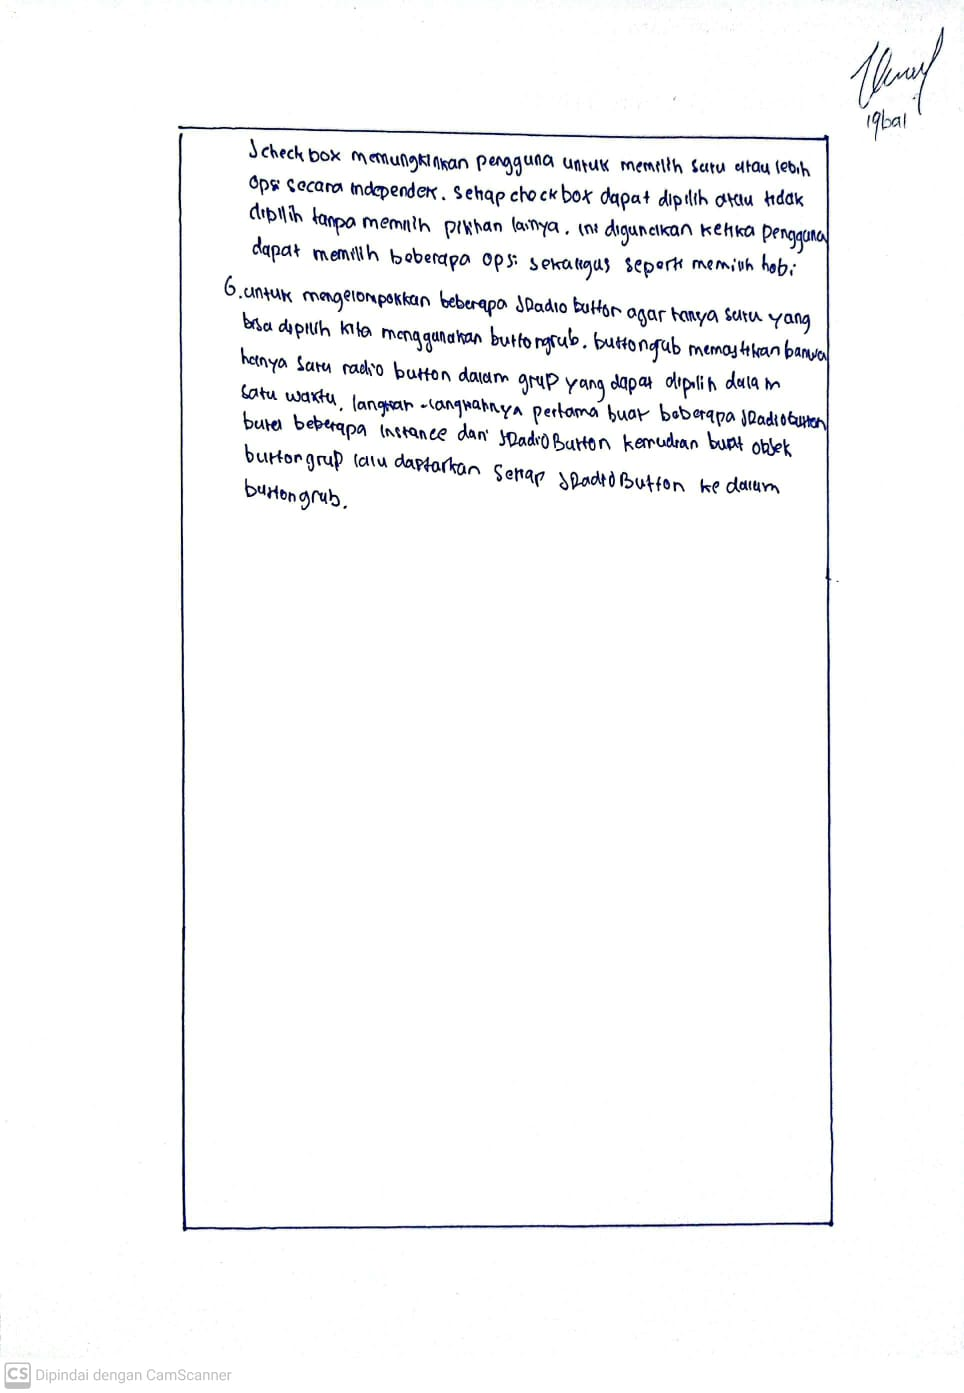 Iqbal
Jcheckbox memungkinkan pengguna untuk memilih satu atau lebih
opsi secara independek. setiap checkbox dapat dipilih atau tidak
dipilih tanpa memilih pilihan lainya. ini digunakan ketika pengguna
dapat memilih beberapa opsi sekaligus seperti memilih hobi
6. untuk mengelompokkan beberapa JRadio button agar hanya satu yang
bisa dipilih kita menggunakan buttongrub. buttongrub memastikan bahwa
hanya satu radio button dalam grup yang dapat dipilih dalam
satu waktu. langkah-langkahnya pertama buat beberapa JRadioButton
buat beberapa instance dari JRadioButton kemudian buat objek
buttongrup lalu daftarkan setiap JRadioButton ke dalam
buttongrub.
CS Dipindai dengan CamScanner